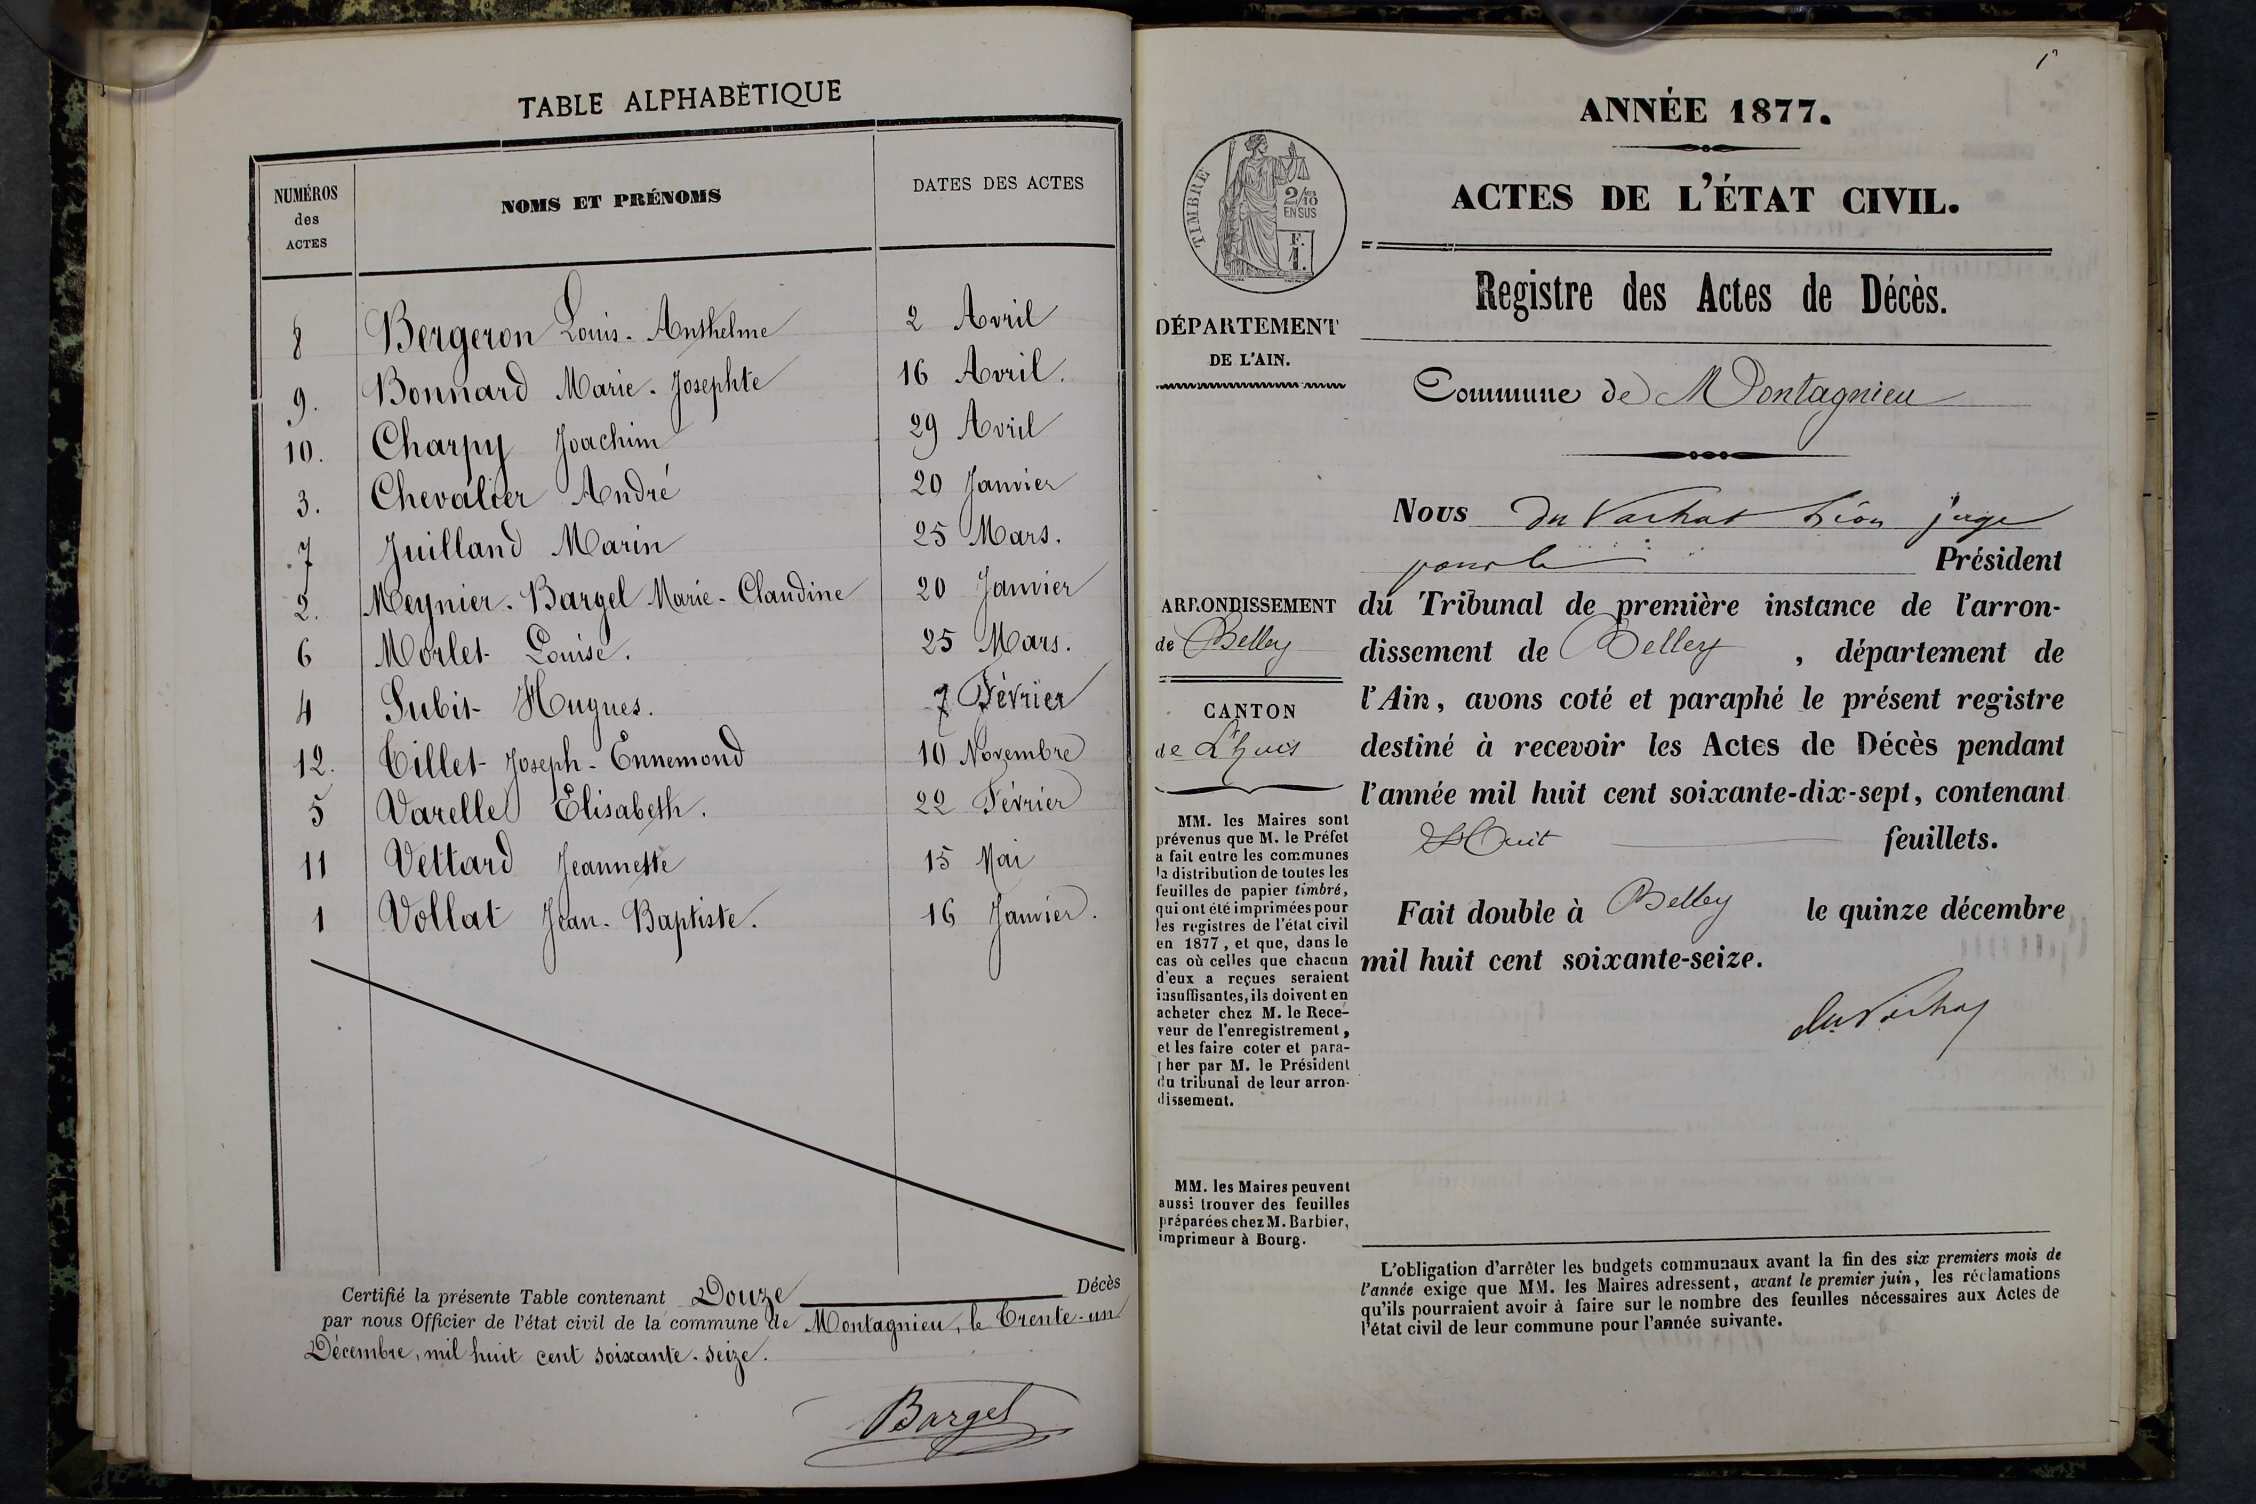 TABLE ALPHABÉTIQUE
NUMÉROS des ACTES NOMS ET PRÉNOMS DATES DES ACTES
8 Bergeron Louis-Anthelme 2 Avril
9. Bonnard Marie-Josephte 16 Avril.
10. Charpy Joachim 29 Avril
3. Chevalier André 20 Janvier
7 Juilland Marin 25 Mars.
2. Meynier-Bargel Marie-Claudine 20 Janvier
6 Morlet Louise. 25 Mars.
4 Subit Hugues. 7 Février
12. Tillet Joseph-Ennemond 10 Novembre
5 Varelle Elisabeth. 22 Février
11 Vettard Jeannette 15 Mai
1 Vollat Jean-Baptiste. 16 Janvier.
Certifié la présente Table contenant Douze Décès
par nous Officier de l'état civil de la commune de Montagnieu, le Trente-un
Décembre, mil huit cent soixante-seize.
Bargel
1er
ANNÉE 1877.
ACTES DE L'ÉTAT CIVIL.
TIMBRE
2/10
EN SUS
F.
1.
Registre des Actes de Décès.
DÉPARTEMENT
DE L'AIN.
Commune de Montagnieu
Nous du Vachat Léon juge
pour le Président
du Tribunal de première instance de l'arron-
dissement de Belley, département de
l'Ain, avons coté et paraphé le présent registre
destiné à recevoir les Actes de Décès pendant
l'année mil huit cent soixante-dix-sept, contenant
Huit feuillets.
Fait double à Belley le quinze décembre
mil huit cent soixante-seize.
du Vachat
ARRONDISSEMENT
de Belley
CANTON
de L'huis
MM. les Maires sont
prévenus que M. le Préfet
a fait entre les communes
la distribution de toutes les
feuilles de papier timbré,
qui ont été imprimées pour
les registres de l'état civil
en 1877, et que, dans le
cas où celles que chacun
d'eux a reçues seraient
insuffisantes, ils doivent en
acheter chez M. le Rece-
veur de l'enregistrement,
et les faire coter et para-
pher par M. le Président
du tribunal de leur arron-
dissement.
MM. les Maires peuvent
aussi trouver des feuilles
préparées chez M. Barbier,
imprimeur à Bourg.
L'obligation d'arrêter les budgets communaux avant la fin des six premiers mois de
l'année exige que MM. les Maires adressent, avant le premier juin, les réclamations
qu'ils pourraient avoir à faire sur le nombre des feuilles nécessaires aux Actes de
l'état civil de leur commune pour l'année suivante.